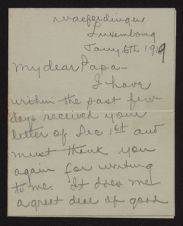 Luxembourg
Jany 5th 1919
My dear Papa-
I have
within the past few
days received your
letter of Dec 1st and
must thank you
again for writing
to me. It does me
a great deal of good